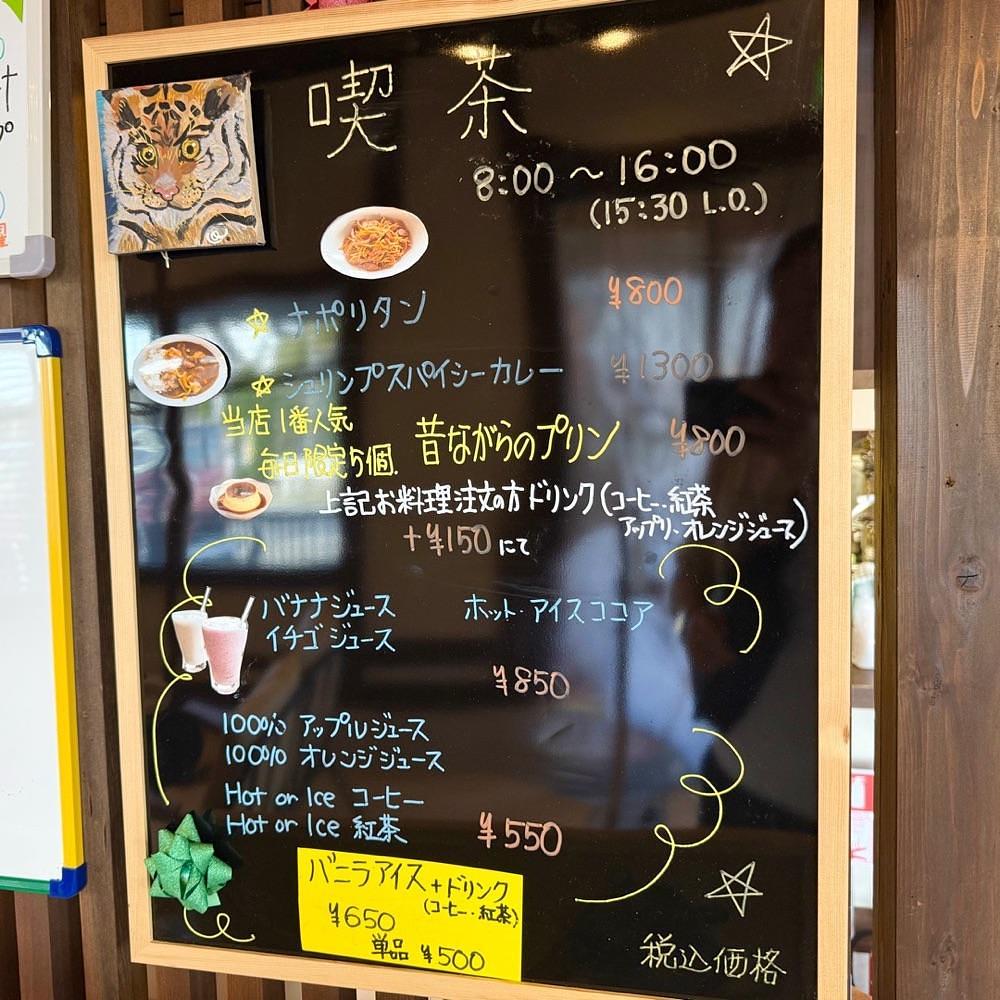 喫茶
8:00 ～ 16:00
(15:30 L.O.)
☆ ナポリタン ¥800
☆ シュリンプスパイシーカレー ¥1300
当店1番人気
毎日限定5個. 昔ながらのプリン ¥800
上記お料理注文の方ドリンク(コーヒー・紅茶
アップリ・オレンジジュース)
+¥150にて
バナナジュース ホット・アイスココア
イチゴジュース
¥850
100% アップルジュース
100% オレンジジュース
Hot or Ice コーヒー
Hot or Ice 紅茶 ¥550
バニラアイス+ドリンク
(コーヒー・紅茶)
¥650
単品 ¥500
税込価格